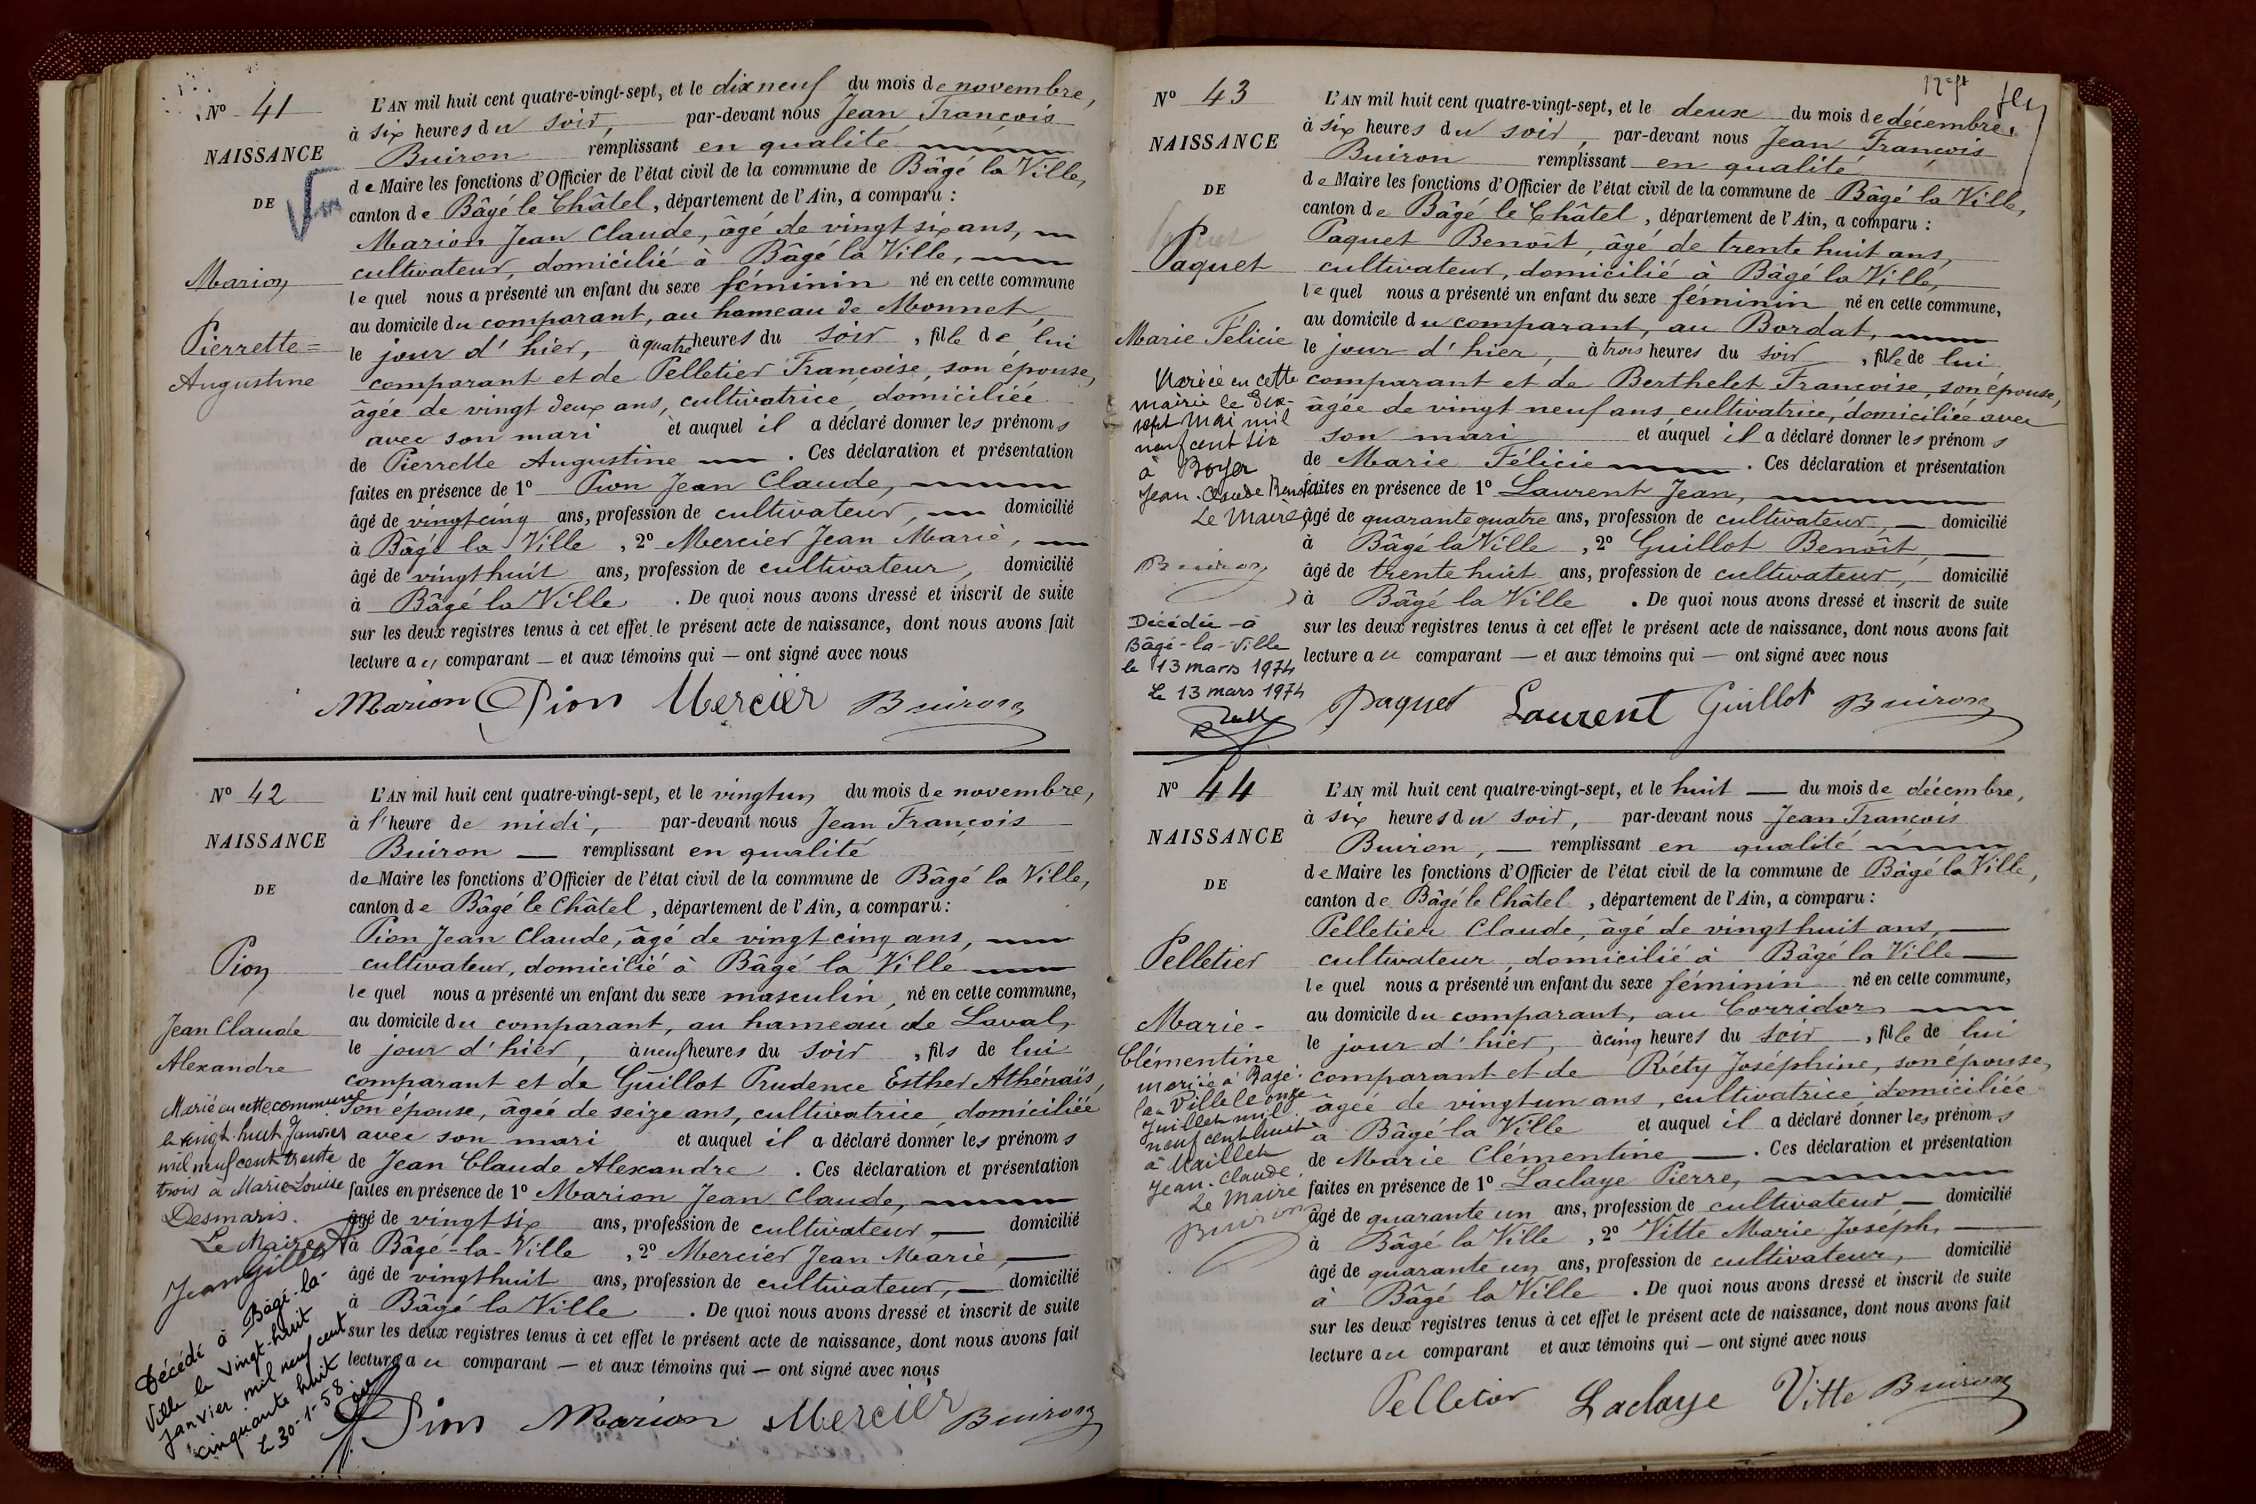 N° 41
NAISSANCE
DE
Marion
Pierrette=
Augustine
L'AN mil huit cent quatre-vingt-sept, et le dix neuf du mois de novembre,
à six heures du soir, par-devant nous Jean François
Buiron remplissant en qualité
de Maire les fonctions d'Officier de l'état civil de la commune de Bâgé la Ville,
canton de Bâgé le Châtel, département de l'Ain, a comparu :
Marion Jean Claude, âgé de vingt six ans,
cultivateur, domicilié à Bâgé la Ville,
lequel nous a présenté un enfant du sexe féminin né en cette commune
au domicile du comparant, au hameau de Monnet,
le jour d'hier, à quatre heures du soir, fille de lui
comparant et de Pelletier Françoise, son épouse,
âgée de vingt deux ans, cultivatrice, domiciliée
avec son mari et auquel il a déclaré donner les prénoms
de Pierrette Augustine. Ces déclaration et présentation
faites en présence de 1° Pion Jean Claude,
âgé de vingt cinq ans, profession de cultivateur, domicilié
à Bâgé la Ville, 2° Mercier Jean Marie,
âgé de vingt huit ans, profession de cultivateur, domicilié
à Bâgé la Ville. De quoi nous avons dressé et inscrit de suite
sur les deux registres tenus à cet effet le présent acte de naissance, dont nous avons fait
lecture au comparant — et aux témoins qui — ont signé avec nous
Marion Pion Mercier Buiron
N° 42
NAISSANCE
DE
Pion
Jean Claude
Alexandre
Marié en cette commune
le vingt-huit Janvier
mil neuf cent trente
trois à Marie-Louise
Desmaris.
Le Maire
Décédé à Bâgé-la-
Ville le vingt-huit
janvier mil neuf cent
cinquante huit
Le 30-1-58.
L'AN mil huit cent quatre-vingt-sept, et le vingt un du mois de novembre,
à l'heure de midi, par-devant nous Jean François
Buiron — remplissant en qualité
de Maire les fonctions d'Officier de l'état civil de la commune de Bâgé la Ville,
canton de Bâgé le Châtel, département de l'Ain, a comparu :
Pion Jean Claude, âgé de vingt cinq ans,
cultivateur, domicilié à Bâgé la Ville
lequel nous a présenté un enfant du sexe masculin, né en cette commune,
au domicile du comparant, au hameau de Laval,
le jour d'hier, à neuf heures du soir, fils de lui
comparant et de Guillot Prudence Esther Athénaïs,
son épouse, âgée de seize ans, cultivatrice, domiciliée
avec son mari et auquel il a déclaré donner les prénoms
de Jean Claude Alexandre. Ces déclaration et présentation
faites en présence de 1° Marion Jean Claude,
âgé de vingt six ans, profession de cultivateur, domicilié
à Bâgé-la-Ville, 2° Mercier Jean Marie,
âgé de vingt huit ans, profession de cultivateur, — domicilié
à Bâgé la Ville. De quoi nous avons dressé et inscrit de suite
sur les deux registres tenus à cet effet le présent acte de naissance, dont nous avons fait
lecture au comparant — et aux témoins qui — ont signé avec nous
Pion Marion Mercier Buiron
N° 43
NAISSANCE
DE
Paquet
Marie Félicie
Mariée en cette
mairie le dix-
sept Mai mil
neuf cent six
à Boyer
Jean-Claude
Le Maire
Buiron
Décédée à
Bâgé-la-Ville
le 13 mars 1974
Le 13 mars 1974
L'AN mil huit cent quatre-vingt-sept, et le deux du mois de décembre,
à six heures du soir, par-devant nous Jean François
Buiron remplissant en qualité
de Maire les fonctions d'Officier de l'état civil de la commune de Bâgé la Ville,
canton de Bâgé le Châtel, département de l'Ain, a comparu :
Paquet Benoît, âgé de trente huit ans,
cultivateur, domicilié à Bâgé la Ville,
lequel nous a présenté un enfant du sexe féminin né en cette commune,
au domicile du comparant, au Bordat,
le jour d'hier, à trois heures du soir, fille de lui
comparant et de Berthelet Françoise, son épouse,
âgée de vingt neuf ans, cultivatrice, domiciliée avec
son mari et auquel il a déclaré donner les prénoms
de Marie Félicie. Ces déclaration et présentation
faites en présence de 1° Laurent Jean,
âgé de quarante quatre ans, profession de cultivateur, — domicilié
à Bâgé la Ville, 2° Guillot Benoît,
âgé de trente huit ans, profession de cultivateur, domicilié
à Bâgé la Ville. De quoi nous avons dressé et inscrit de suite
sur les deux registres tenus à cet effet le présent acte de naissance, dont nous avons fait
lecture au comparant — et aux témoins qui — ont signé avec nous
Paquet Laurent Guillot Buiron
N° 44
NAISSANCE
DE
Pelletier
Marie-
Clémentine
mariée à Bagé-
la-Ville le onze
Juillet mil
neuf cent huit
à Maillet
Jean-Claude.
Le Maire
Buiron
L'AN mil huit cent quatre-vingt-sept, et le huit — du mois de décembre,
à six heures du soir, par-devant nous Jean François
Buiron, — remplissant en qualité
de Maire les fonctions d'Officier de l'état civil de la commune de Bâgé la Ville,
canton de Bâgé le Châtel, département de l'Ain, a comparu :
Pelletier Claude, âgé de vingt huit ans,
cultivateur, domicilié à Bâgé la Ville
lequel nous a présenté un enfant du sexe féminin né en cette commune,
au domicile du comparant, au Corridor
le jour d'hier, à cinq heures du soir, fille de lui
comparant et de Réty Joséphine, son épouse,
âgée de vingt un ans, cultivatrice, domiciliée
à Bâgé la Ville et auquel il a déclaré donner les prénoms
de Marie Clémentine —. Ces déclaration et présentation
faites en présence de 1° Laclaye Pierre,
âgé de quarante un ans, profession de cultivateur — domicilié
à Bâgé la Ville, 2° Vitte Marie Joseph,
âgé de quarante un ans, profession de cultivateur, domicilié
à Bâgé la Ville. De quoi nous avons dressé et inscrit de suite
sur les deux registres tenus à cet effet le présent acte de naissance, dont nous avons fait
lecture au comparant et aux témoins qui — ont signé avec nous
Pelletier Laclaye Vitte Buiron